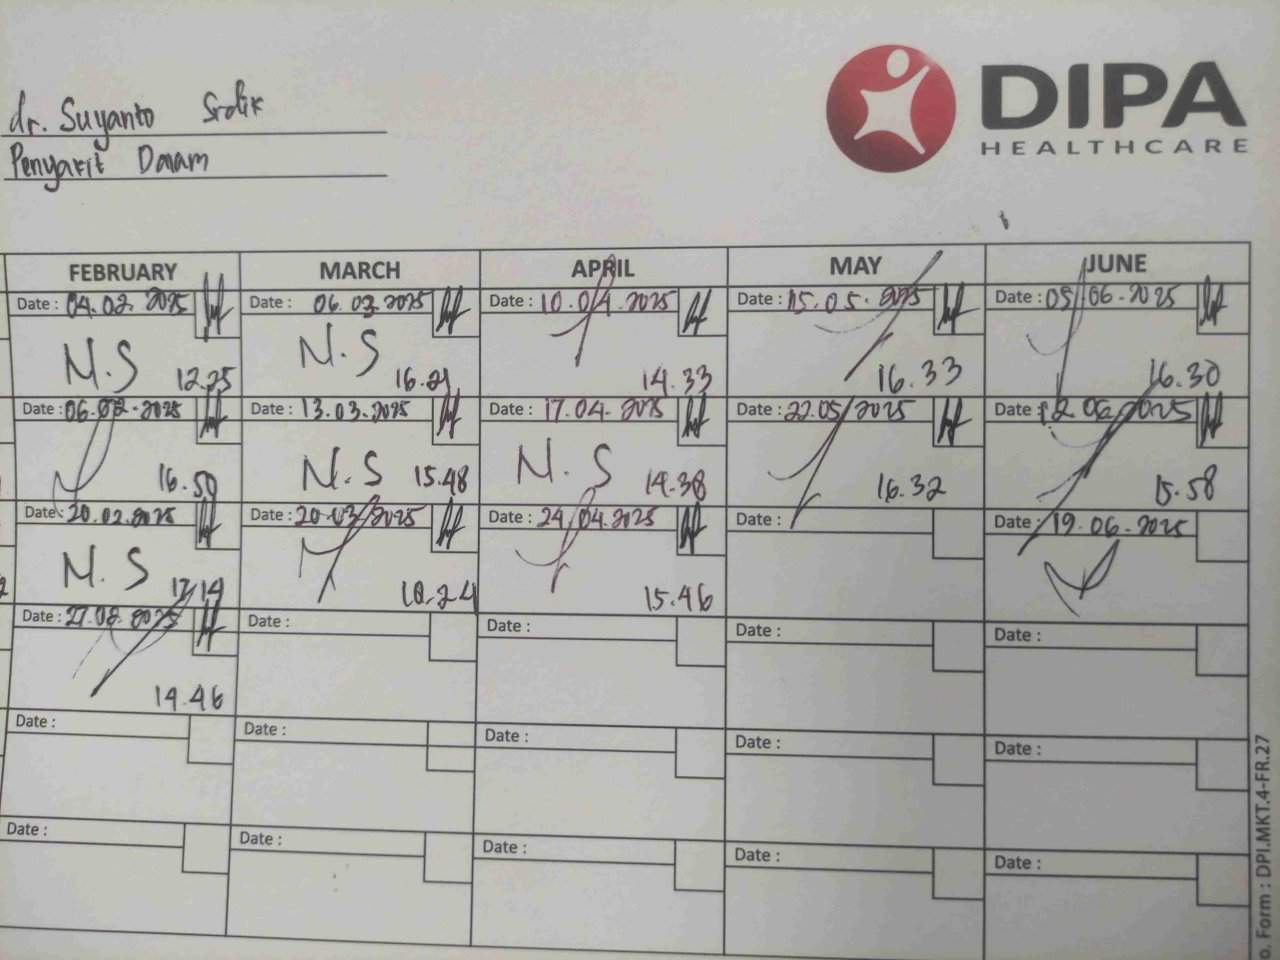 dr. Suyanto Srdik
Penyakit Dalam
DIPA
HEALTHCARE
FEBRUARY MARCH APRIL MAY JUNE
Date : 04.02.2025 Date : 06.03.2025 Date : 10.04.2025 Date : 15.05.2025 Date : 05.06.2025
N.S N.S
12.25 16.21 14.33 16.33 16.30
Date : 06.02.2025 Date : 13.03.2025 Date : 17.04.2025 Date : 22.05.2025 Date : 12.06.2025
N.S N.S
16.50 15.48 14.38 16.32 15.58
Date : 20.02.2025 Date : 20.03.2025 Date : 24.04.2025 Date : Date : 19.06.2025
N.S
17.14 10.24 15.46
Date : 27.02.2025 Date : Date : Date : Date :
14.46
Date : Date : Date : Date : Date :
Date : Date : Date : Date : Date :
o. Form : DPI.MKT.4-FR.27